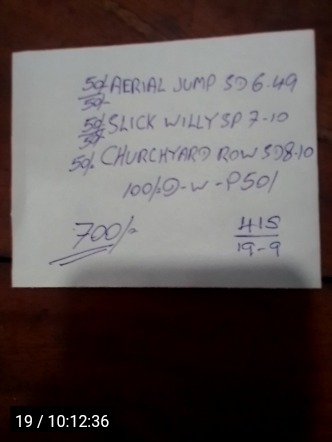 50/50/- AERIAL JUMP SD 6.49
50/50/- SLICK WILLY SP 7-10
50/- CHURCHYARD ROW SD 8.10
100/- D-W-P50/
700/-
415
19-9
19 / 10:12:36